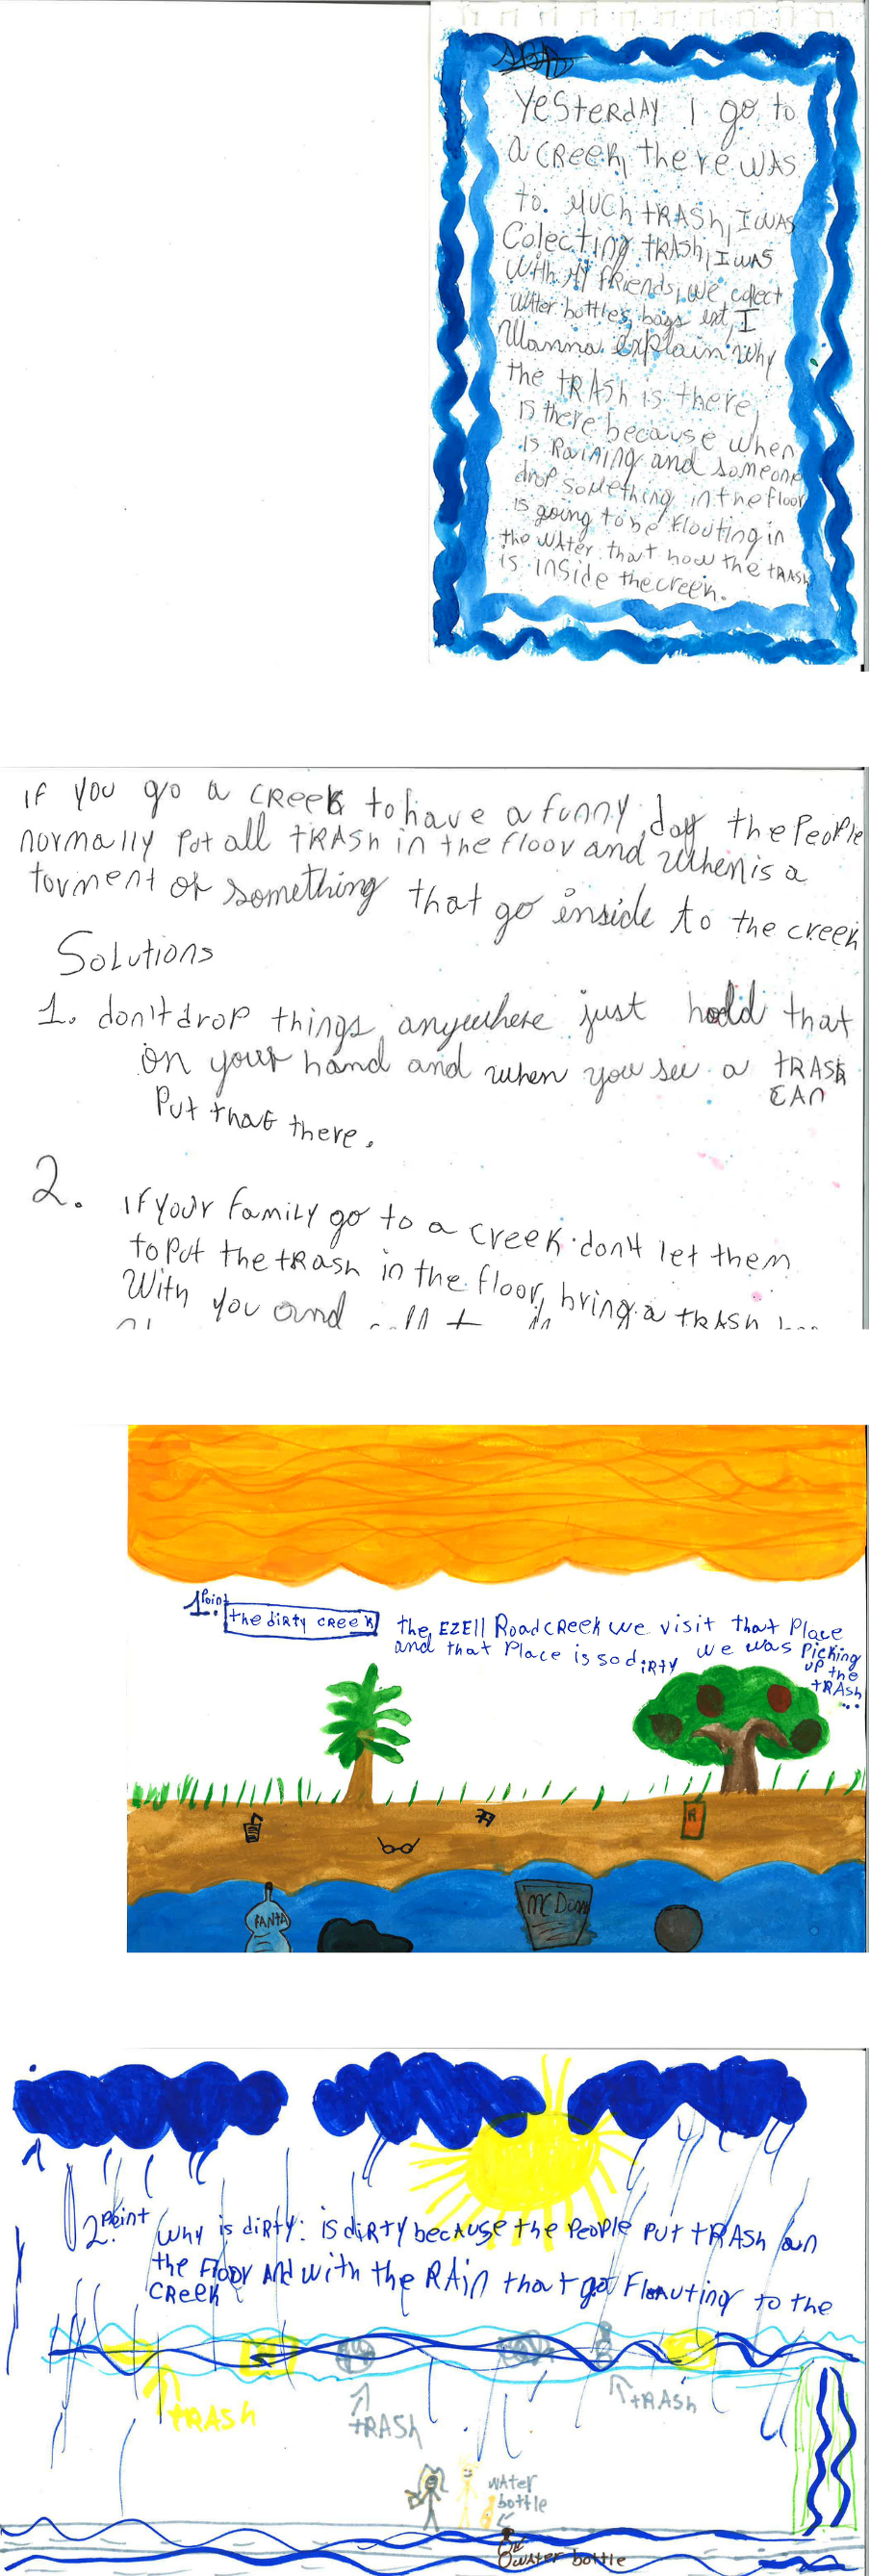 Yesterday I go to
a creek, there was
to much trash, I was
Colecting trash, I was
With my friends, we colect
water bottles, bags ext, I
Wanna explain why
the trash is there,
is there because when
is Raining and someone
drop something in the floor
is going to be flouting in
the water that how the trash
is inside the creek.
if you go a creek to have a funny day the people
normally put all trash in the floor and when is a
torment or something that go inside to the creek
Solutions
1. don't drop things anywhere just hold that
on your hand and when you see a trash
can
Put that there.
2. if your family go to a creek don't let them
to put the trash in the floor, bring a trash
With you and
1 Point
the dirty creek
the EZEll Road creek we visit that place
and that place is so dirty we was picking
up the
trash...
R
FANTA
MC Don
2. Point
why is dirty: is dirty because the people put trash oun
the floor and with the Rain that got flouting to the
creek
trash
trash
trash
water
bottle
water bottle